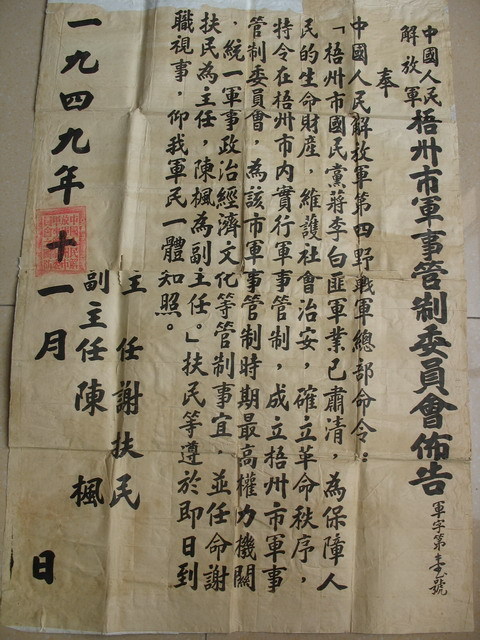 中國人民
解放軍
梧州市軍事管制委員會佈告
軍字第壹號
奉
中國人民解放軍第四野戰軍總部命令：
「梧州市國民黨蔣李白匪軍業已肅清，為保障人
民的生命財產，維護社會治安，確立革命秩序，
特令在梧州市內實行軍事管制，成立梧州市軍事
管制委員會，為該市軍事管制時期最高權力機關
，統一軍事政治經濟文化等管制事宜，並任命謝
扶民為主任，陳楓為副主任。」扶民等遵於即日到
職視事，仰我軍民一體知照。
主任謝扶民
副主任陳楓
一九四九年十一月 日